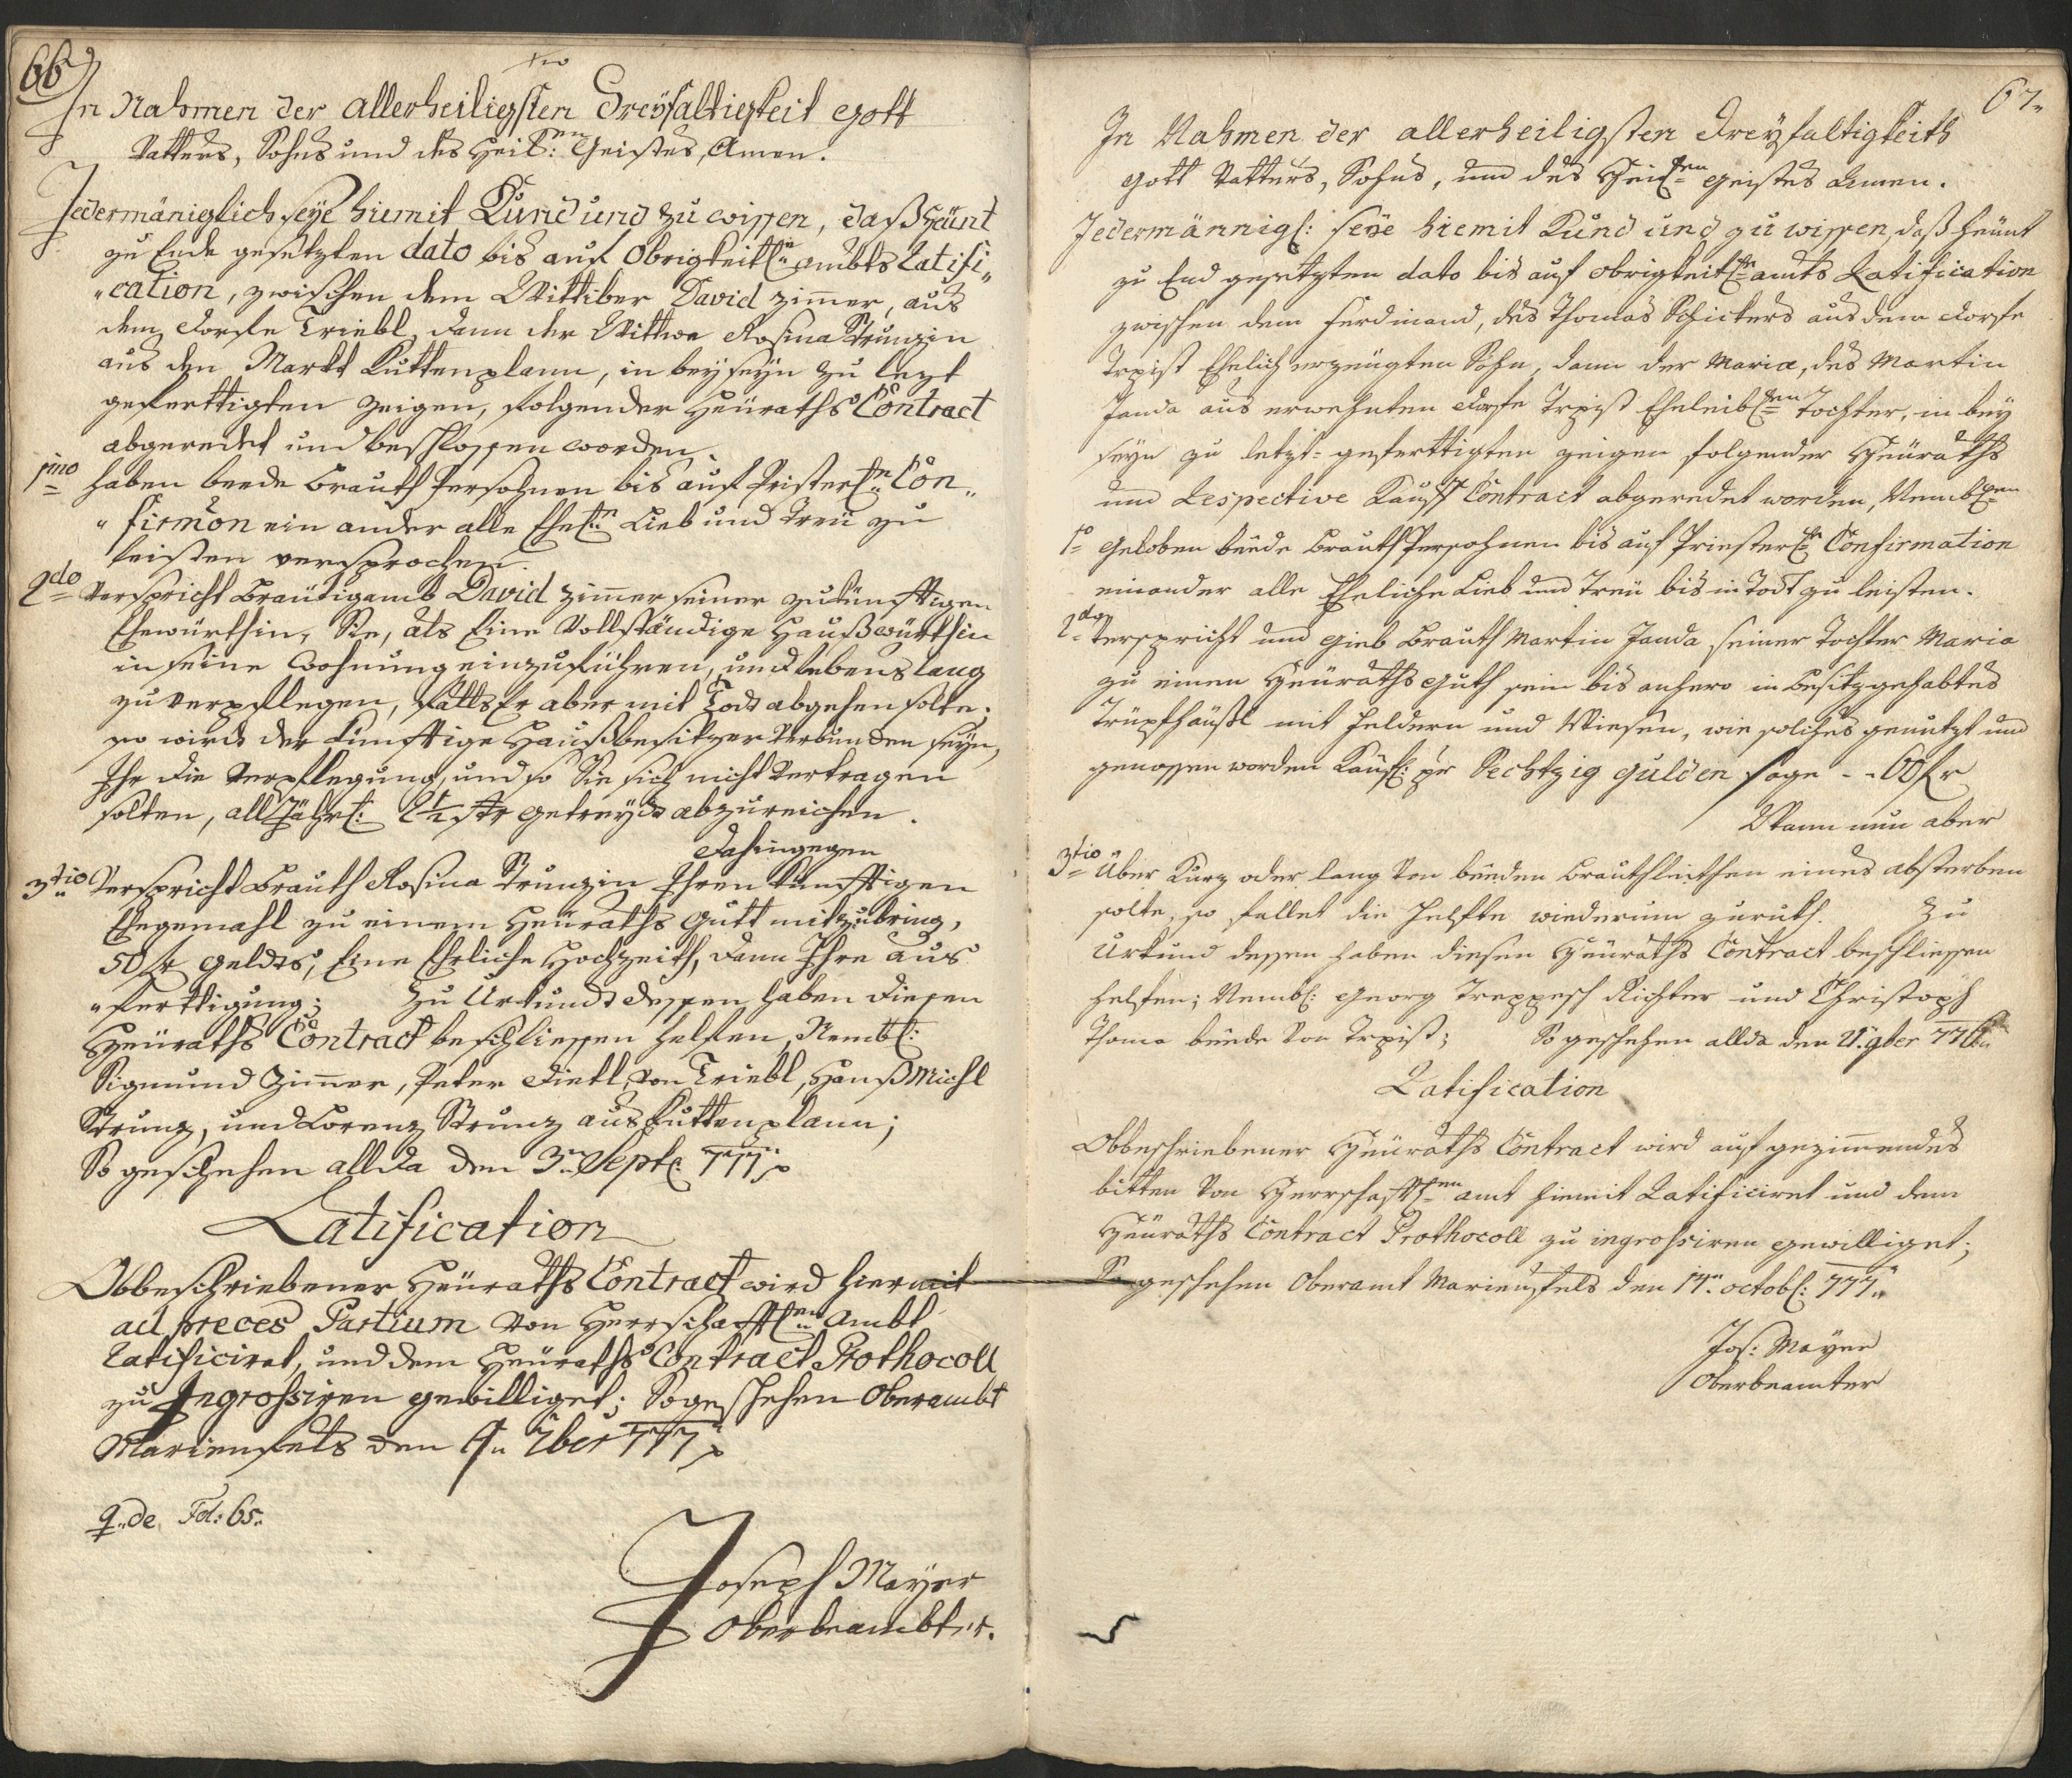 66
In Nahmen der allerheiligsten Dreyfaltigkeit Gott
Vatters, Sohns und des Heil: Geistes, Amen.
Jedermäniglich seye hiemit Kund und zu wissen, daß heünt
zu Ende gesetzten dato bis auf Obrigkeitl:n ambts Ratifi„
„cation, zwischen dem Wittiber David Zimmer, aus
dem Dorfe Triebl, dann der Wittwe Rosina Strunzin
aus den Markt Kuttenplann, in beyseyn zu lezt
geferttigten Zeigen, folgender Heüraths Contract
abgeredet und beschlossen worden.
1mo haben beede Brauth Persohnen bis auf Pristerl:n Con„
„firmon ein ander alle Ehel:n Lieb und Treü zu
leisten versprochen.
2do Verspricht Bräutigamb David Zimmer seiner zukünfftigen
Ehewürthin, Sie, als Eine Vollständige Haußwürthin
in seine Wohnung einzuführen, und lebens lang
zu verpflegen, falls Er aber mit Todt abgehen solte;
so wird der künfftige Haußbesitzer Verbunden seyn,
Ihr die Verpflegung, und so Sie sich nicht Vertragen
solten, all Jährl: 2½ str getreyds abzureichen.
Dahingegen
3tio Verspricht Brauth Rosina Strunzin Ihren künfftigen
Ehegemahl zu einem Heüraths Gutt mitzubring,
50 fr geldts, Eine Ehrliche Hochzeith, dann Ihre Aus
„ferttigung; Zu Urkundt dessen haben diesen
Heüraths Contract beschliessen helfen, Nembl:
Sigmund Zimmer, Peter Dietl, von Triebl, Hanß Michl
Strunz, und Lorenz Strunz aus Kuttenplann;
So geschehen allda den 3n Sept: 777
Ratification
Obbeschriebener Heüraths Contract wird hiermit
ad preces Partium von Herrschafftl:en Ambt
Ratificiret, und dem Heüraths Contract Prothocoll
zu Ingrossiren gewilliget; So geschehen Oberambt
Marienfels den 4n 7ber 777
q: de Fol: 65.
Joseph Mayer
Oberbeambter.
67
In Nahmen der allerheiligsten Dreyfaltigkeith
Gott Vatters, Sohns, und des Heil:en Geistes Amen.
Jedermännigl: seye hiemit Kund und zu wissen, daß heünt
zu End gesetzten dato bis auf obrigkeitl:n amts Ratification
zwischen dem Ferdinand, des Thomas Schickers aus dem Dorfe
Trpist Ehelich erzeügten Sohn, dann der Maria, des Martin
Janda aus erwehnten Dorfe Trpist Eheleibl:en Tochter, in bey
seyn zu letzt-gefertigten zeigen folgender Heüraths
und Respective Kauff Contract abgeredet worden, Nembl:en
1o Geloben beede Brauth Persohnen bis auf Priesterl:n Confirmation
einander alle Eheliche Lieb und Treü bis in Todt zu leisten.
2do Verspricht und Gieb Brauth Martin Janda seiner Tochter Maria
zu einen Heüraths Guth sein bis anhero in Besitz gehabtes
Trüpfhäußl mit Feldern und Wiesen, wie solches genutzt und
genossen worden Käufl: pr Sechtzig Gulden sage - - 60 fr
Wann nun aber
3tio Über Kurz oder lang Von beeden Brauthleithen eines absterben
solte, so fallet die Helfte wiederum zuruk. Zu
Urkund dessen haben diesen Heüraths Contract beschliessen
helfen; Nembl: Georg Treppesch Richter und Christoph
Thoma beede Von Trpist; So geschehen allda den 21. 9ber 776
Ratification
Obbeschriebener Heüraths Contract wird auf gezimmendes
bitten Von Herrschafftl:en amt hiemit Ratificiret und dem
Heüraths Contract Prothocoll zu ingrossiren gewilliget;
So geschehen Oberamt Marienfels den 14n octobl: 777
Jos: Mayer
Oberbeamter